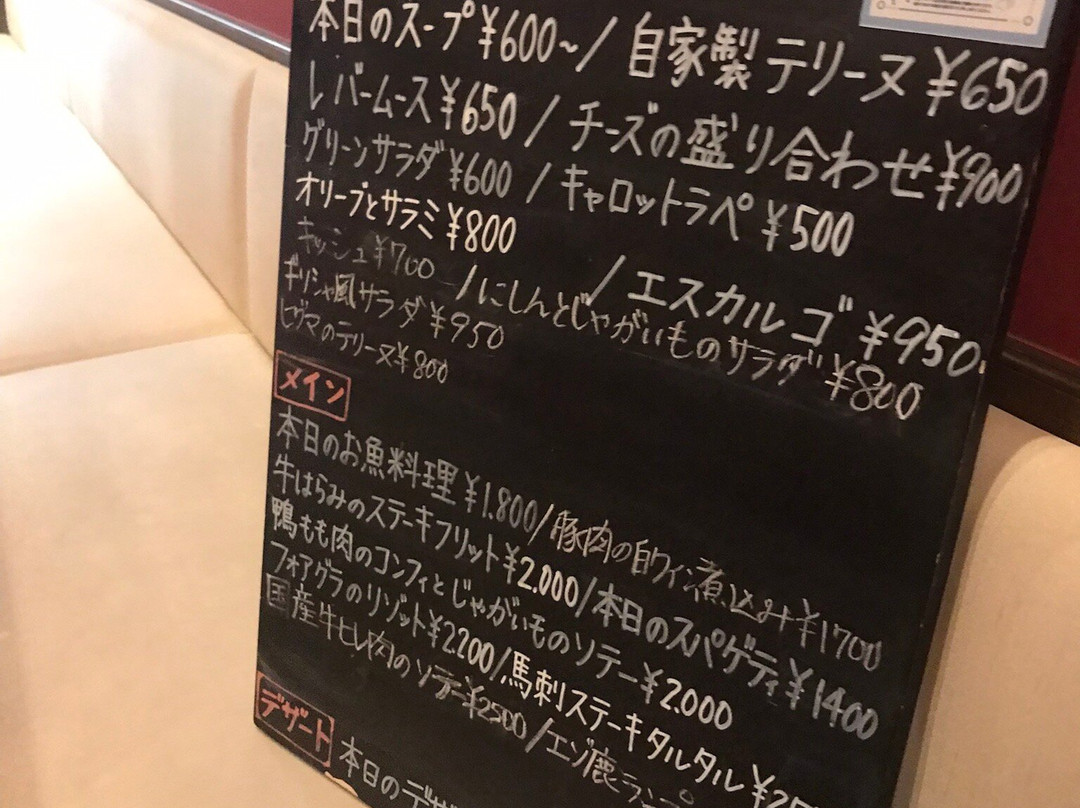 本日のスープ¥600~/自家製テリーヌ¥650
レバームース¥650/チーズの盛り合わせ¥900
グリーンサラダ¥600/キャロットラペ¥500
オリーブとサラミ¥800/エスカルゴ¥950
キッシュ¥700/にしんとじゃがいものサラダ¥800
ギリシャ風サラダ¥950
のテリーヌ¥800
メイン
本日のお魚料理¥1.800/豚肉の白ワイン煮込み¥1700
牛はらみのステーキフリット¥2.000/本日のスパゲティ¥1400
鴨もも肉のコンフィとじゃがいものソテー¥2.000
フォアグラのリゾット¥2.200/馬刺ステーキタルタル
国産牛ヒレ肉のソテー¥2500/エゾ鹿
デザート
本日のデザ